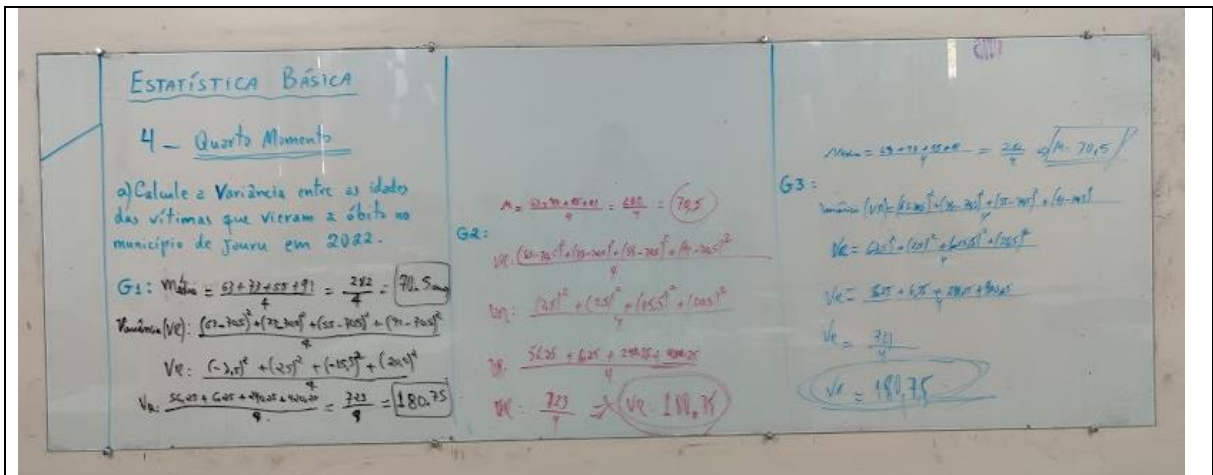 ESTATÍSTICA BÁSICA
4 - Quarto Momento
a) Calcule a Variância entre as idades
das vítimas que vieram a óbito no
município de Jouru em 2022.
G1: Média = 63+73+55+91 / 4 = 282 / 4 = 70.5 anos
Variância (VR): (63-70,5)² + (73-70,5)² + (55-70,5)² + (91-70,5)² / 4
VR: (-7,5)² + (2,5)² + (-15,5)² + (20,5)² / 4
VR: 56,25 + 6,25 + 240,25 + 420,25 / 4 = 723 / 4 = 180.75
G2:
M = 63+73+55+91 / 4 = 282 / 4 = 70,5
VR: (63-70,5)² + (73-70,5)² + (55-70,5)² + (91-70,5)² / 4
VR: (7,5)² + (2,5)² + (15,5)² + (20,5)² / 4
VR: 56,25 + 6,25 + 240,25 + 420,25 / 4
VR: 723 / 4 => VR: 180,75
G3:
Média = 63+73+55+91 / 4 = 282 / 4 => M= 70,5
Variância (VR) = (63-70,5)² + (73-70,5)² + (55-70,5)² + (91-70,5)² / 4
VR = (2,5)² + (20,5)² / 4
VR = 6,25 + / 4
VR = / 4
VR = 180,75